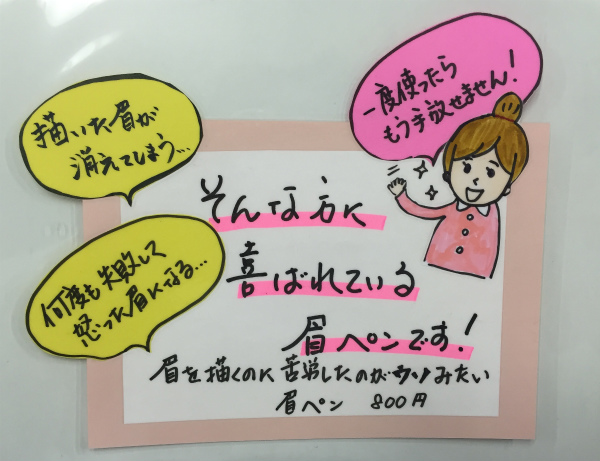 描いた眉が
消えてしまう…
一度使ったら
もう手放せません!
何度も失敗して
怒った眉になる…
そんな方に
喜ばれている
眉ペンです!
眉を描くのに苦労したのがウソみたい
眉ペン 800円